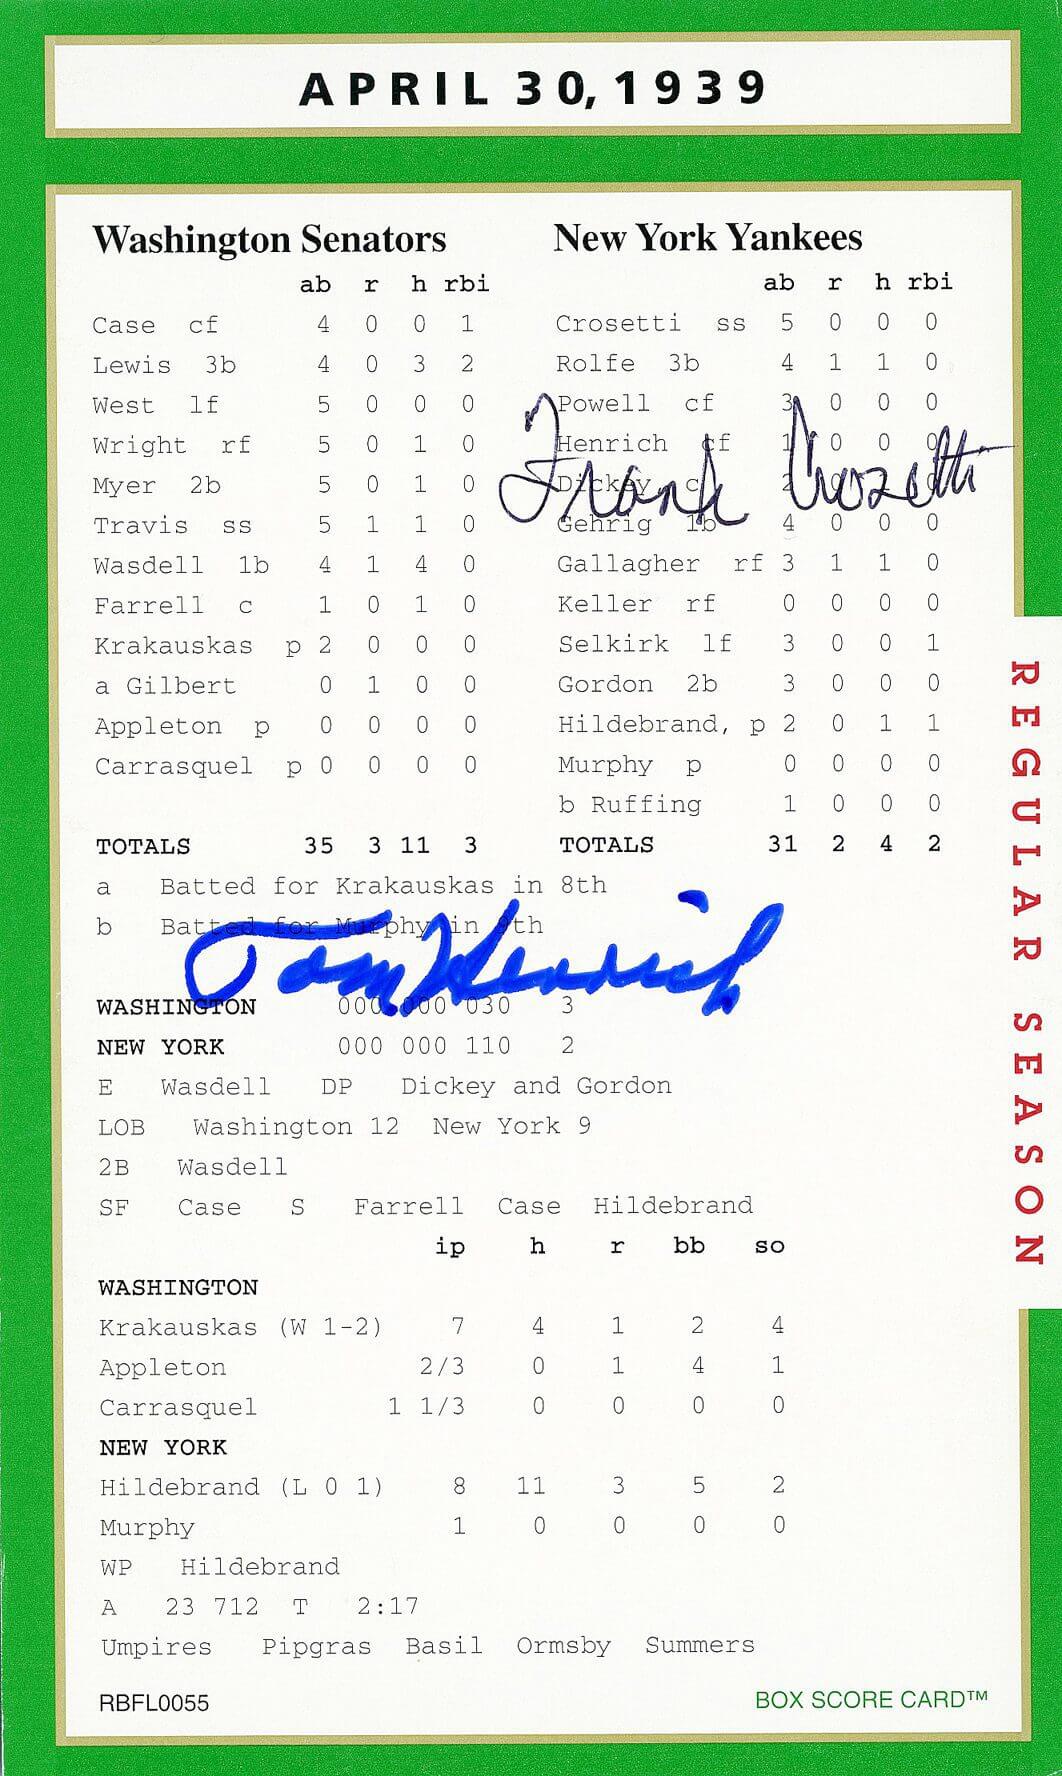 APRIL 30, 1939
Washington Senators
ab r h rbi
Case cf 4 0 0 1
Lewis 3b 4 0 3 2
West lf 5 0 0 0
Wright rf 5 0 1 0
Myer 2b 5 0 1 0
Travis ss 5 1 1 0
Wasdell 1b 4 1 4 0
Farrell c 1 0 1 0
Krakauskas p 2 0 0 0
a Gilbert 0 1 0 0
Appleton p 0 0 0 0
Carrasquel p 0 0 0 0
TOTALS 35 3 11 3
New York Yankees
ab r h rbi
Crosetti ss 5 0 0 0
Rolfe 3b 4 1 1 0
Powell cf 3 0 0 0
Henrich cf 1 0 0 0
Dickey c 2 0
Gehrig 1b 4 0 0 0
Gallagher rf 3 1 1 0
Keller rf 0 0 0 0
Selkirk lf 3 0 0 1
Gordon 2b 3 0 0 0
Hildebrand, p 2 0 1 1
Murphy p 0 0 0 0
b Ruffing 1 0 0 0
TOTALS 31 2 4 2
Frank Crosetti
a Batted for Krakauskas in 8th
b Batted for Murphy in 9th
Tom Henrich
WASHINGTON 000 000 030 3
NEW YORK 000 000 110 2
E Wasdell DP Dickey and Gordon
LOB Washington 12 New York 9
2B Wasdell
SF Case S Farrell Case Hildebrand
ip h r bb so
WASHINGTON
Krakauskas (W 1-2) 7 4 1 2 4
Appleton 2/3 0 1 4 1
Carrasquel 1 1/3 0 0 0 0
NEW YORK
Hildebrand (L 0 1) 8 11 3 5 2
Murphy 1 0 0 0 0
WP Hildebrand
A 23 712 T 2:17
Umpires Pipgras Basil Ormsby Summers
RBFL0055
BOX SCORE CARD™
REGULAR SEASON